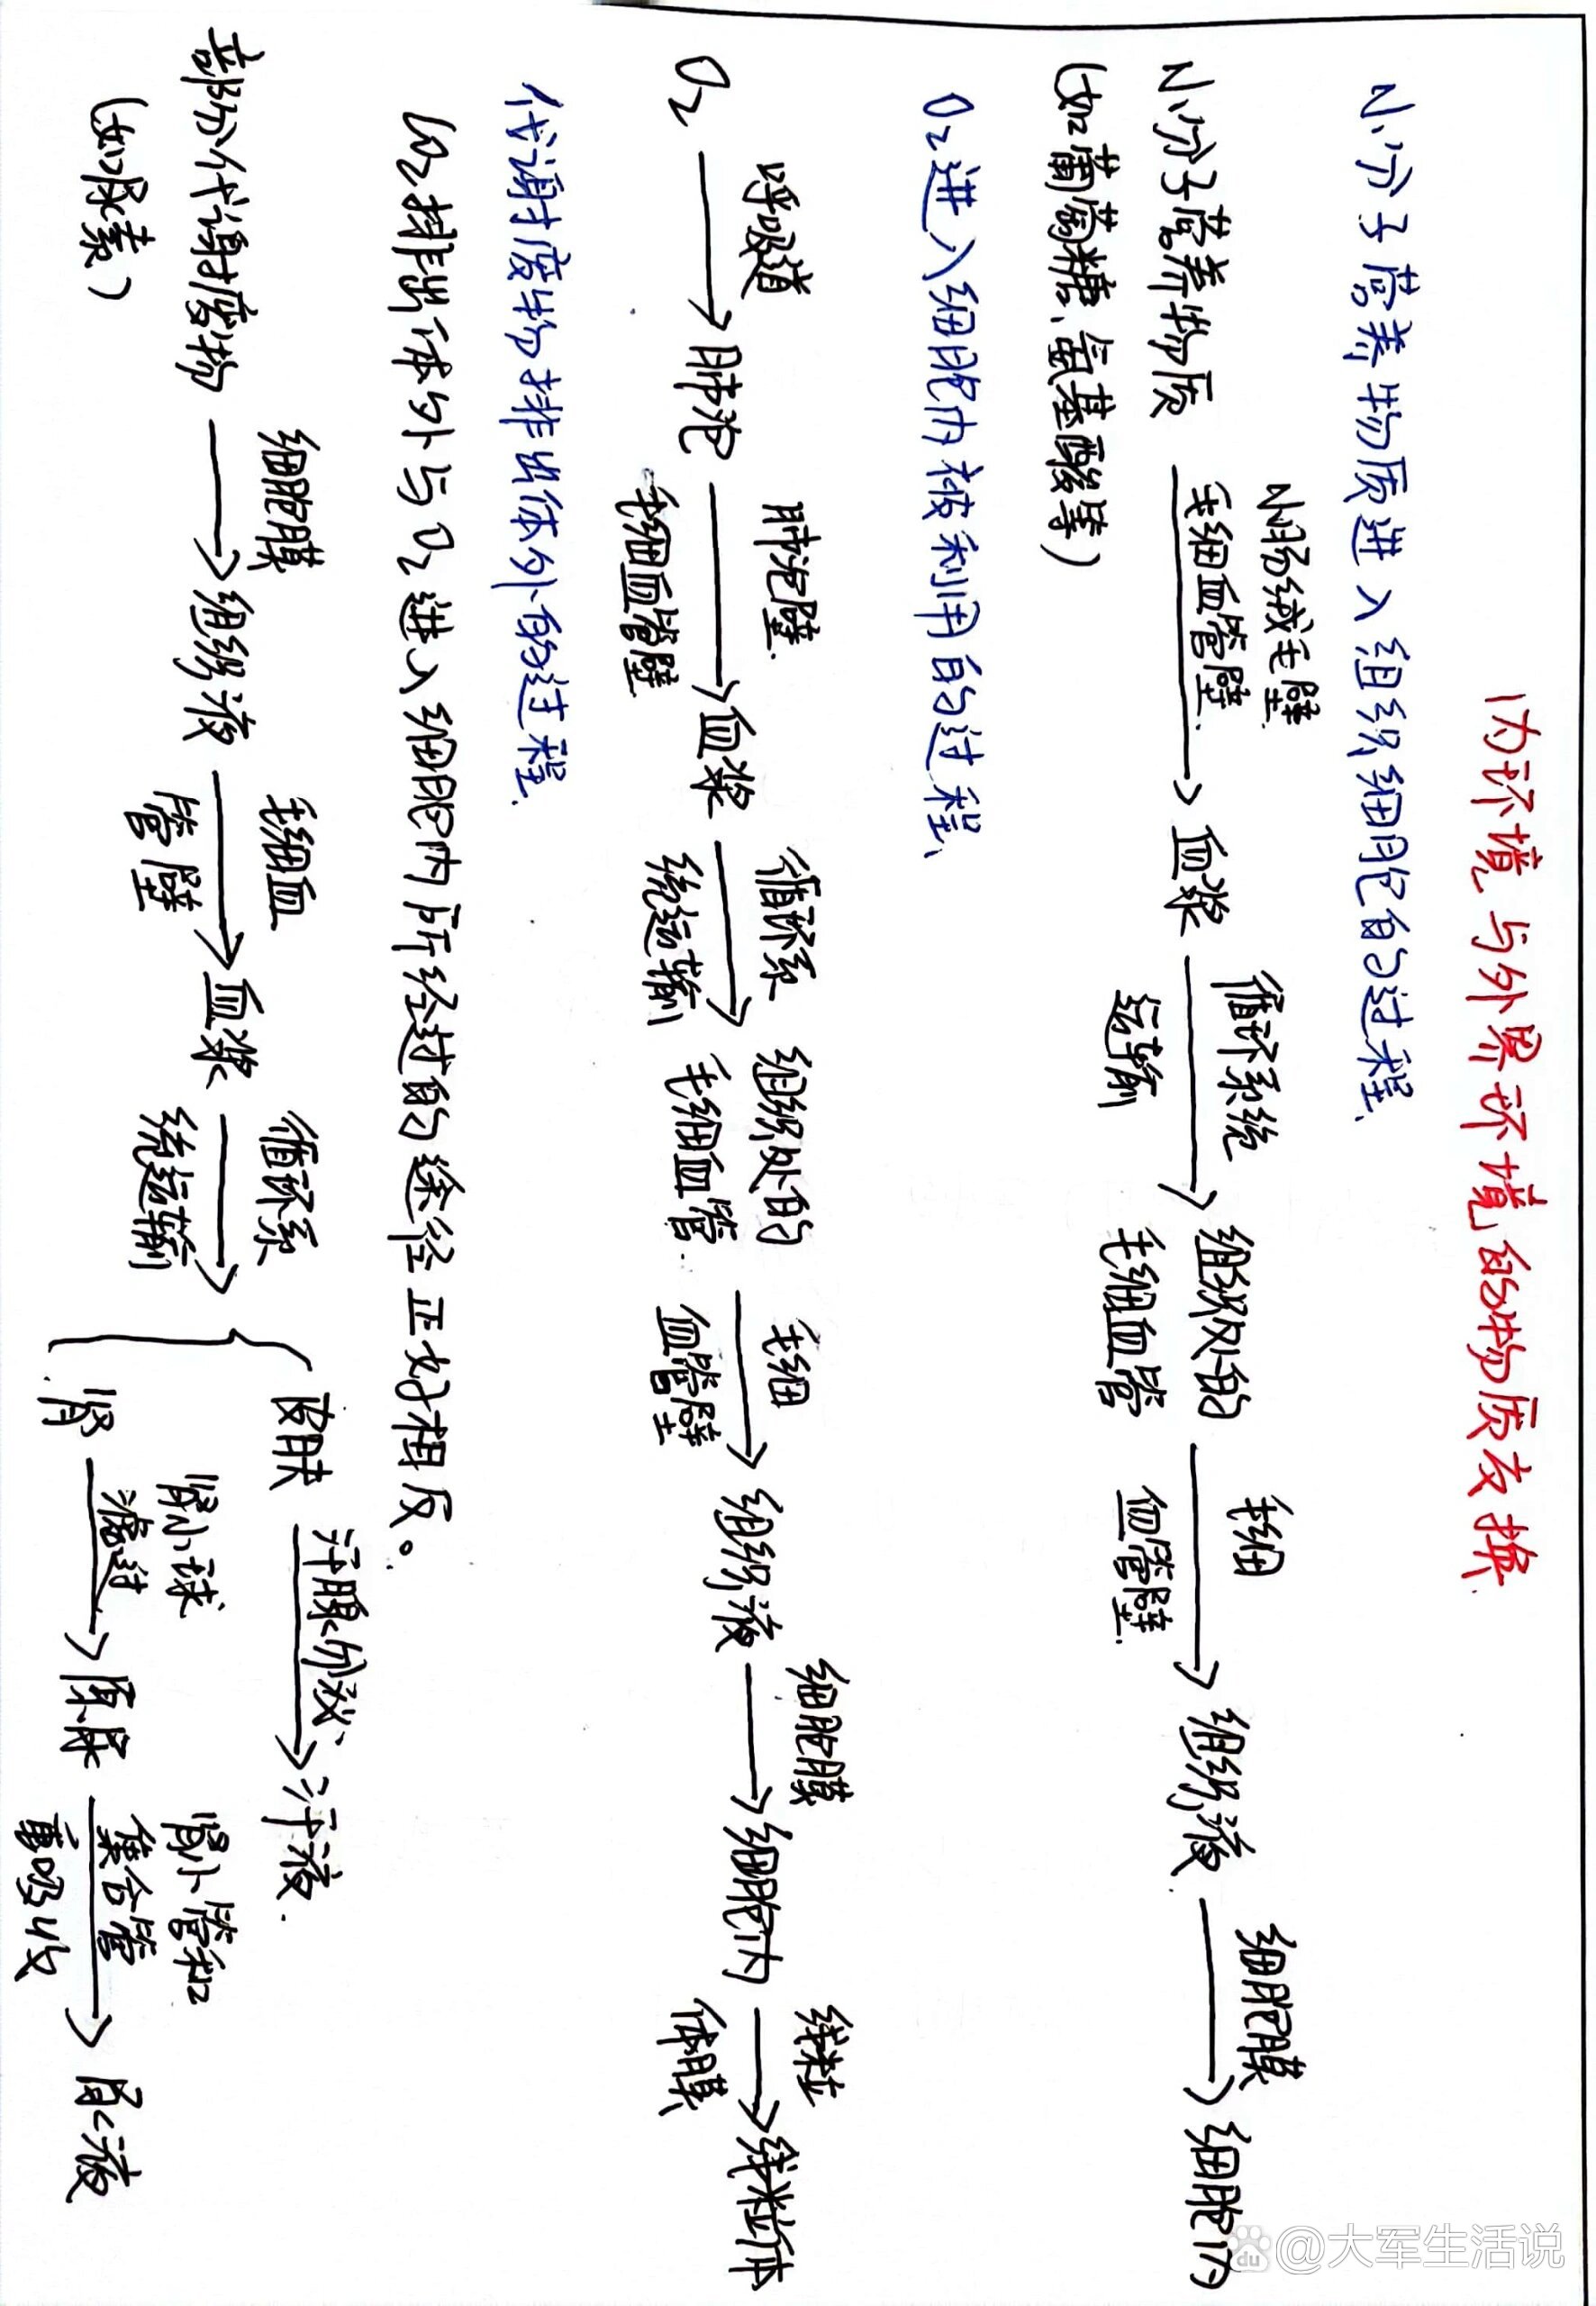 内环境与外界环境的物质交换.
小分子营养物质进入组织细胞的过程.
小肠绒毛壁 循环系统 毛细 细胞膜
小分子营养物质 → 血浆 → 组织处的 → 组织液 → 细胞内
毛细血管壁 运输 毛细血管 血管壁
(如葡萄糖、氨基酸等)
O₂进入细胞内被利用的过程、
呼吸道 肺泡壁 循环系 组织处的 毛细 细胞膜 线粒
O₂ → 肺泡 → 血浆 → 毛细血管 → 组织液 → 细胞内 → 线粒体
毛细血管壁 统运输 血管壁 体膜
代谢废物排出体外的过程.
CO₂排出体外与O₂进入细胞内所经过的途径正好相反。
细胞膜 毛细血 循环系 皮肤 汗腺分泌 → 汗液.
部分代谢废物 → 组织液 → 血浆 → {
(如尿素) 管壁 统运输
肾小球 肾小管和
肾 滤过 → 原尿 集合管 → 尿液
重吸收
@大军生活说